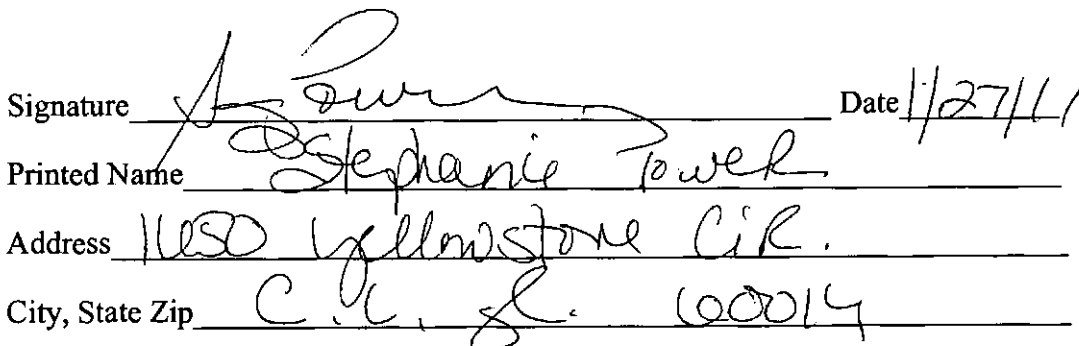 Signature Date 1/27/11
Printed Name Stephanie Power
Address 1650 Yellowstone CiR.
City, State Zip C.L. IL. 60014